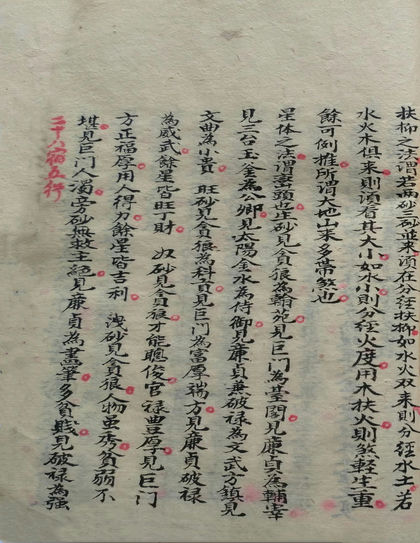 扶抑之法謂若兩砂三砂並來須在分經扶抑如水火双來則分經水土若
水火木俱來則須看其大小如水小則分經火度用木扶火則煞輕生重
餘可例推所謂大地山來多帶煞也
星体之法謂巒頭也庄砂見貪狼為翰苑見巨門為䑓閣見廉貞為輔宰
見三台玉釜為公卿見太陽金水為侍御見廉貞兼破祿為文武方鎮見
文曲為小貴 旺砂見貪狼為科貢見巨門為富厚端方見廉貞破祿
為威武餘星皆旺丁財 奴砂見貪狼才能聰俊官祿豊厚見巨門
方正福厚用人得力餘星皆吉利 洩砂見貪狼人物虽秀貧弱不
堪見巨門人濁旁砂無救主絕見廉貞為畫筆多貧賤見破祿為強
二十八宿五行